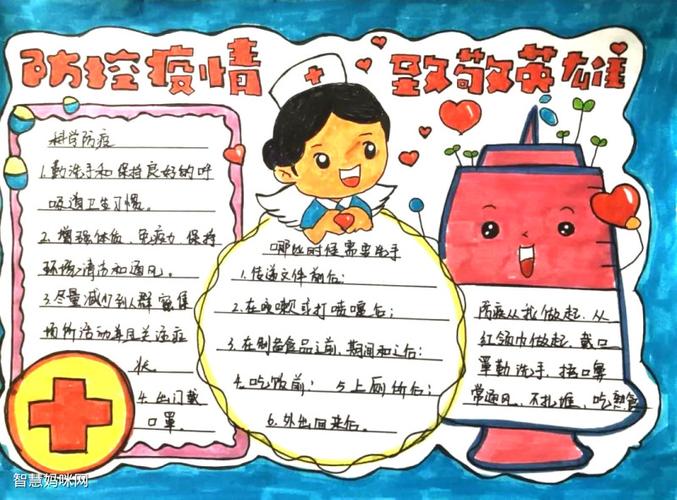 防控疫情 致敬英雄
科学防疫
1.勤洗手和保持良好的呼
吸道卫生习惯。
2.增强体质、免疫力,保持
环境清洁和通风。
3.尽量减少到人群密集
场所活动并且关注症
状。
4.出门戴
口罩。
哪些时候需要洗手
1.传递文件前后;
2.在咳嗽或打喷嚏后;
3.在制备食品之前、期间和之后;
4.吃饭前; 5.上厕所后;
6.外出回来后。
防疫从我做起,从
红领巾做起,戴口
罩勤洗手,捂口鼻
常通风、不扎堆、吃熟食
智慧妈咪网